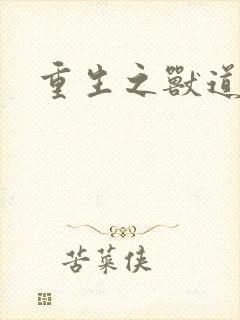 重生之獸道
苦菜侠